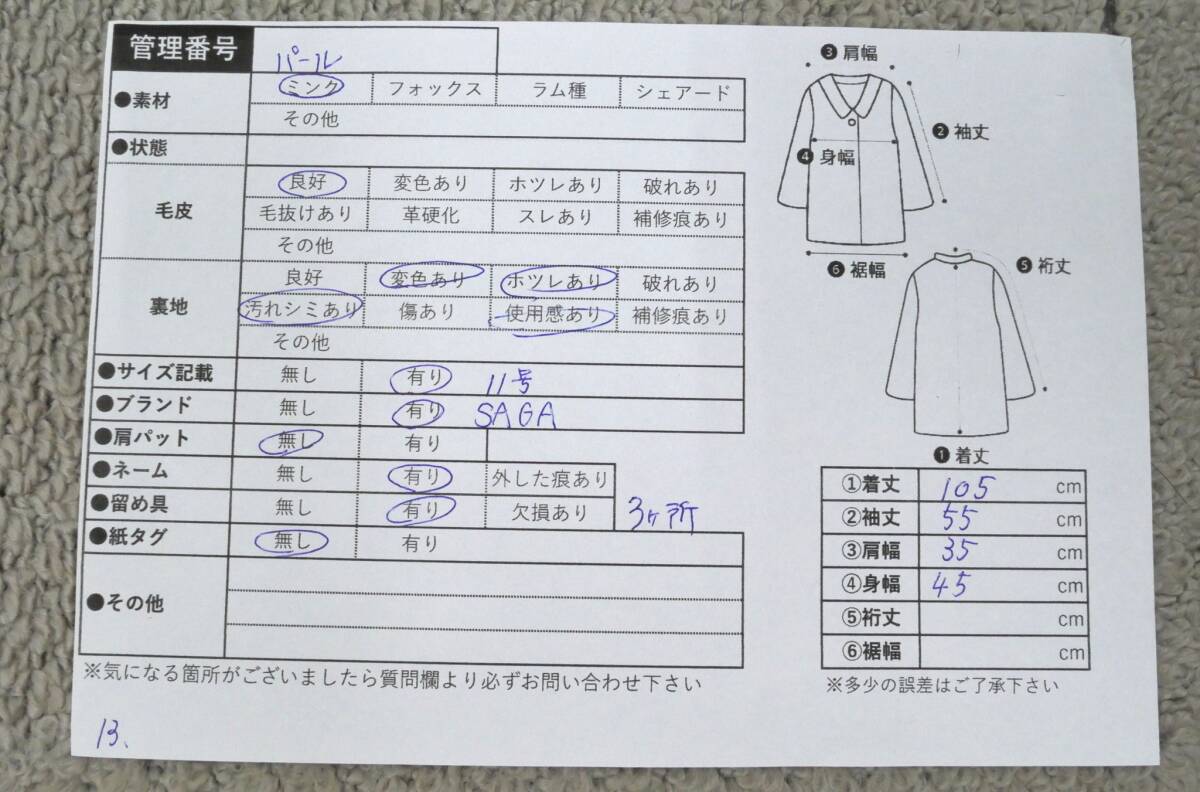 管理番号
パール
●素材 ミンク フォックス ラム種 シェアード
その他
●状態
毛皮 良好 変色あり ホツレあり 破れあり
毛抜けあり 革硬化 スレあり 補修痕あり
その他
裏地 良好 変色あり ホツレあり 破れあり
汚れシミあり 傷あり 使用感あり 補修痕あり
その他
●サイズ記載 無し 有り 11号
●ブランド 無し 有り SAGA
●肩パット 無し 有り
●ネーム 無し 有り 外した痕あり
●留め具 無し 有り 欠損あり 3ヶ所
●紙タグ 無し 有り
●その他
※気になる箇所がございましたら質問欄より必ずお問い合わせ下さい
13、
❸肩幅
❷袖丈
❹身幅
❻裾幅
❺裄丈
❶着丈
①着丈 105 cm
②袖丈 55 cm
③肩幅 35 cm
④身幅 45 cm
⑤裄丈 cm
⑥裾幅 cm
※多少の誤差はご了承下さい